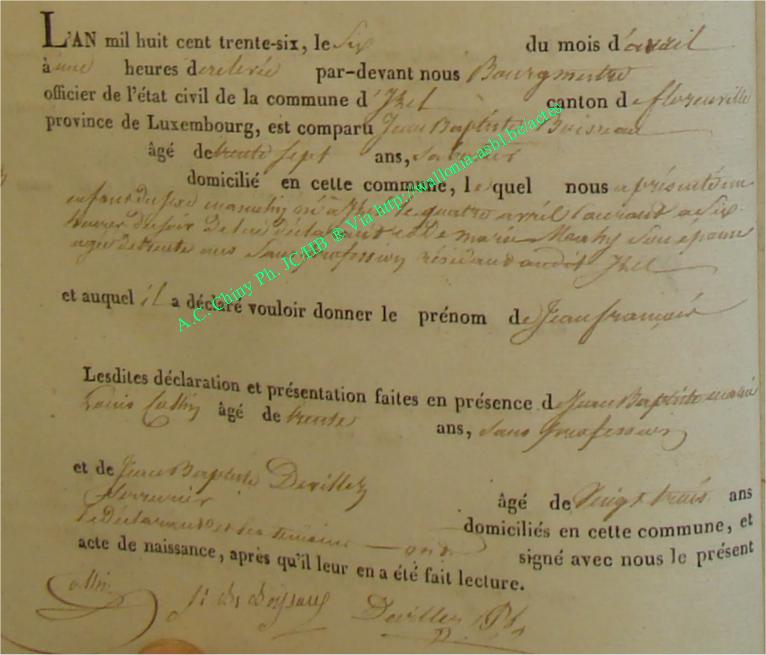 L'AN mil huit cent trente-six, le six du mois d'avril
à une heures de relevée par-devant nous Bourgmestre
officier de l'état civil de la commune d'Izel canton de florenville
province de Luxembourg, est comparu Jean Baptiste Boisseau
âgé de trente sept ans,
domicilié en cette commune, lequel nous a présenté un
enfant du sexe masculin né à Izel le quatre avril courant a six
heures du soir de lui déclarant et de marie son épouse
agée de trente ans Sans profession résidant audit Izel
et auquel il a déclaré vouloir donner le prénom de Jean françois
Lesdites déclaration et présentation faites en présence de Jean Baptiste marie
Louis Collin âgé de trente ans, sans profession
et de Jean Baptiste Devillez âgé de Vingt trois ans
Serrurier domiciliés en cette commune, et
le Déclarant et les temoins ont signé avec nous le présent
acte de naissance, après qu'il leur en a été fait lecture.
Collin J. Bte Boisseau Devillez
A.C. Chiny Ph. JC/HB ® Via http://wallonia-asbl.be/actes